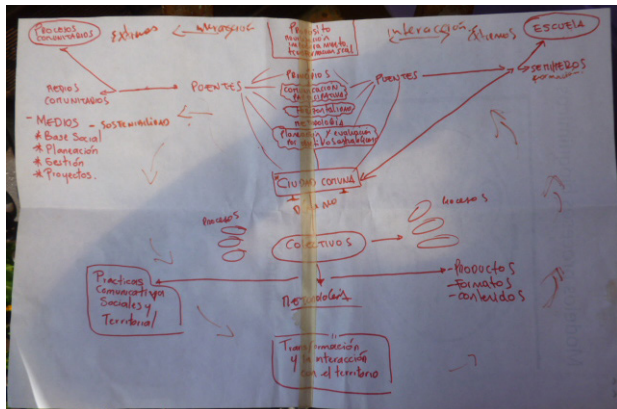 PROCESOS
COMUNITARIOS
Extremos
Interacción
Propósito
transformación social
interacción
Extremos
ESCUELA
MEDIOS
COMUNITARIOS
PUENTES
PRINCIPIOS
COMUNICACION
PARTICIPATIVA
METODOLOGIA
Planeación y evaluación
PUENTES
SEMILLEROS
- MEDIOS - SOSTENIBILIDAD
* Base Social
* Planeación
* Gestión
* Proyectos.
CIUDAD COMUNA
PROCESOS
COLECTIVOS
PROCESOS
Prácticas
Comunicativas
Sociales y
Territorial
Metodología
- PRODUCTOS
- FORMATOS
- contenidos
Transformación
y la interacción
con el territorio